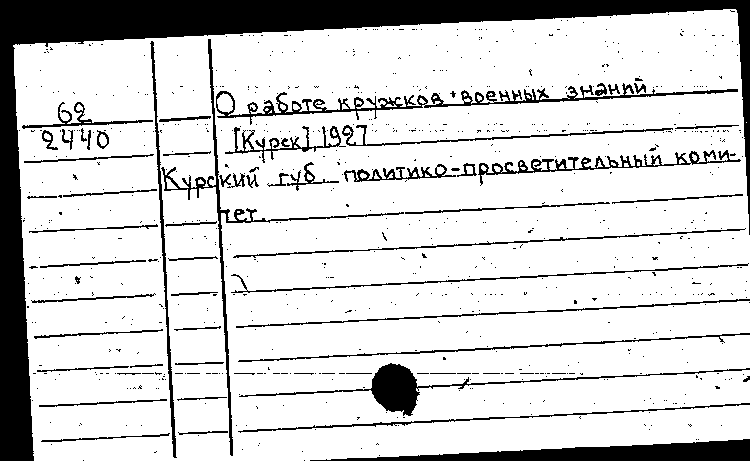 62
2440
О работе кружков военных знаний.
[Курск], 1927
Курский губ. политико-просветительный коми-
тет.